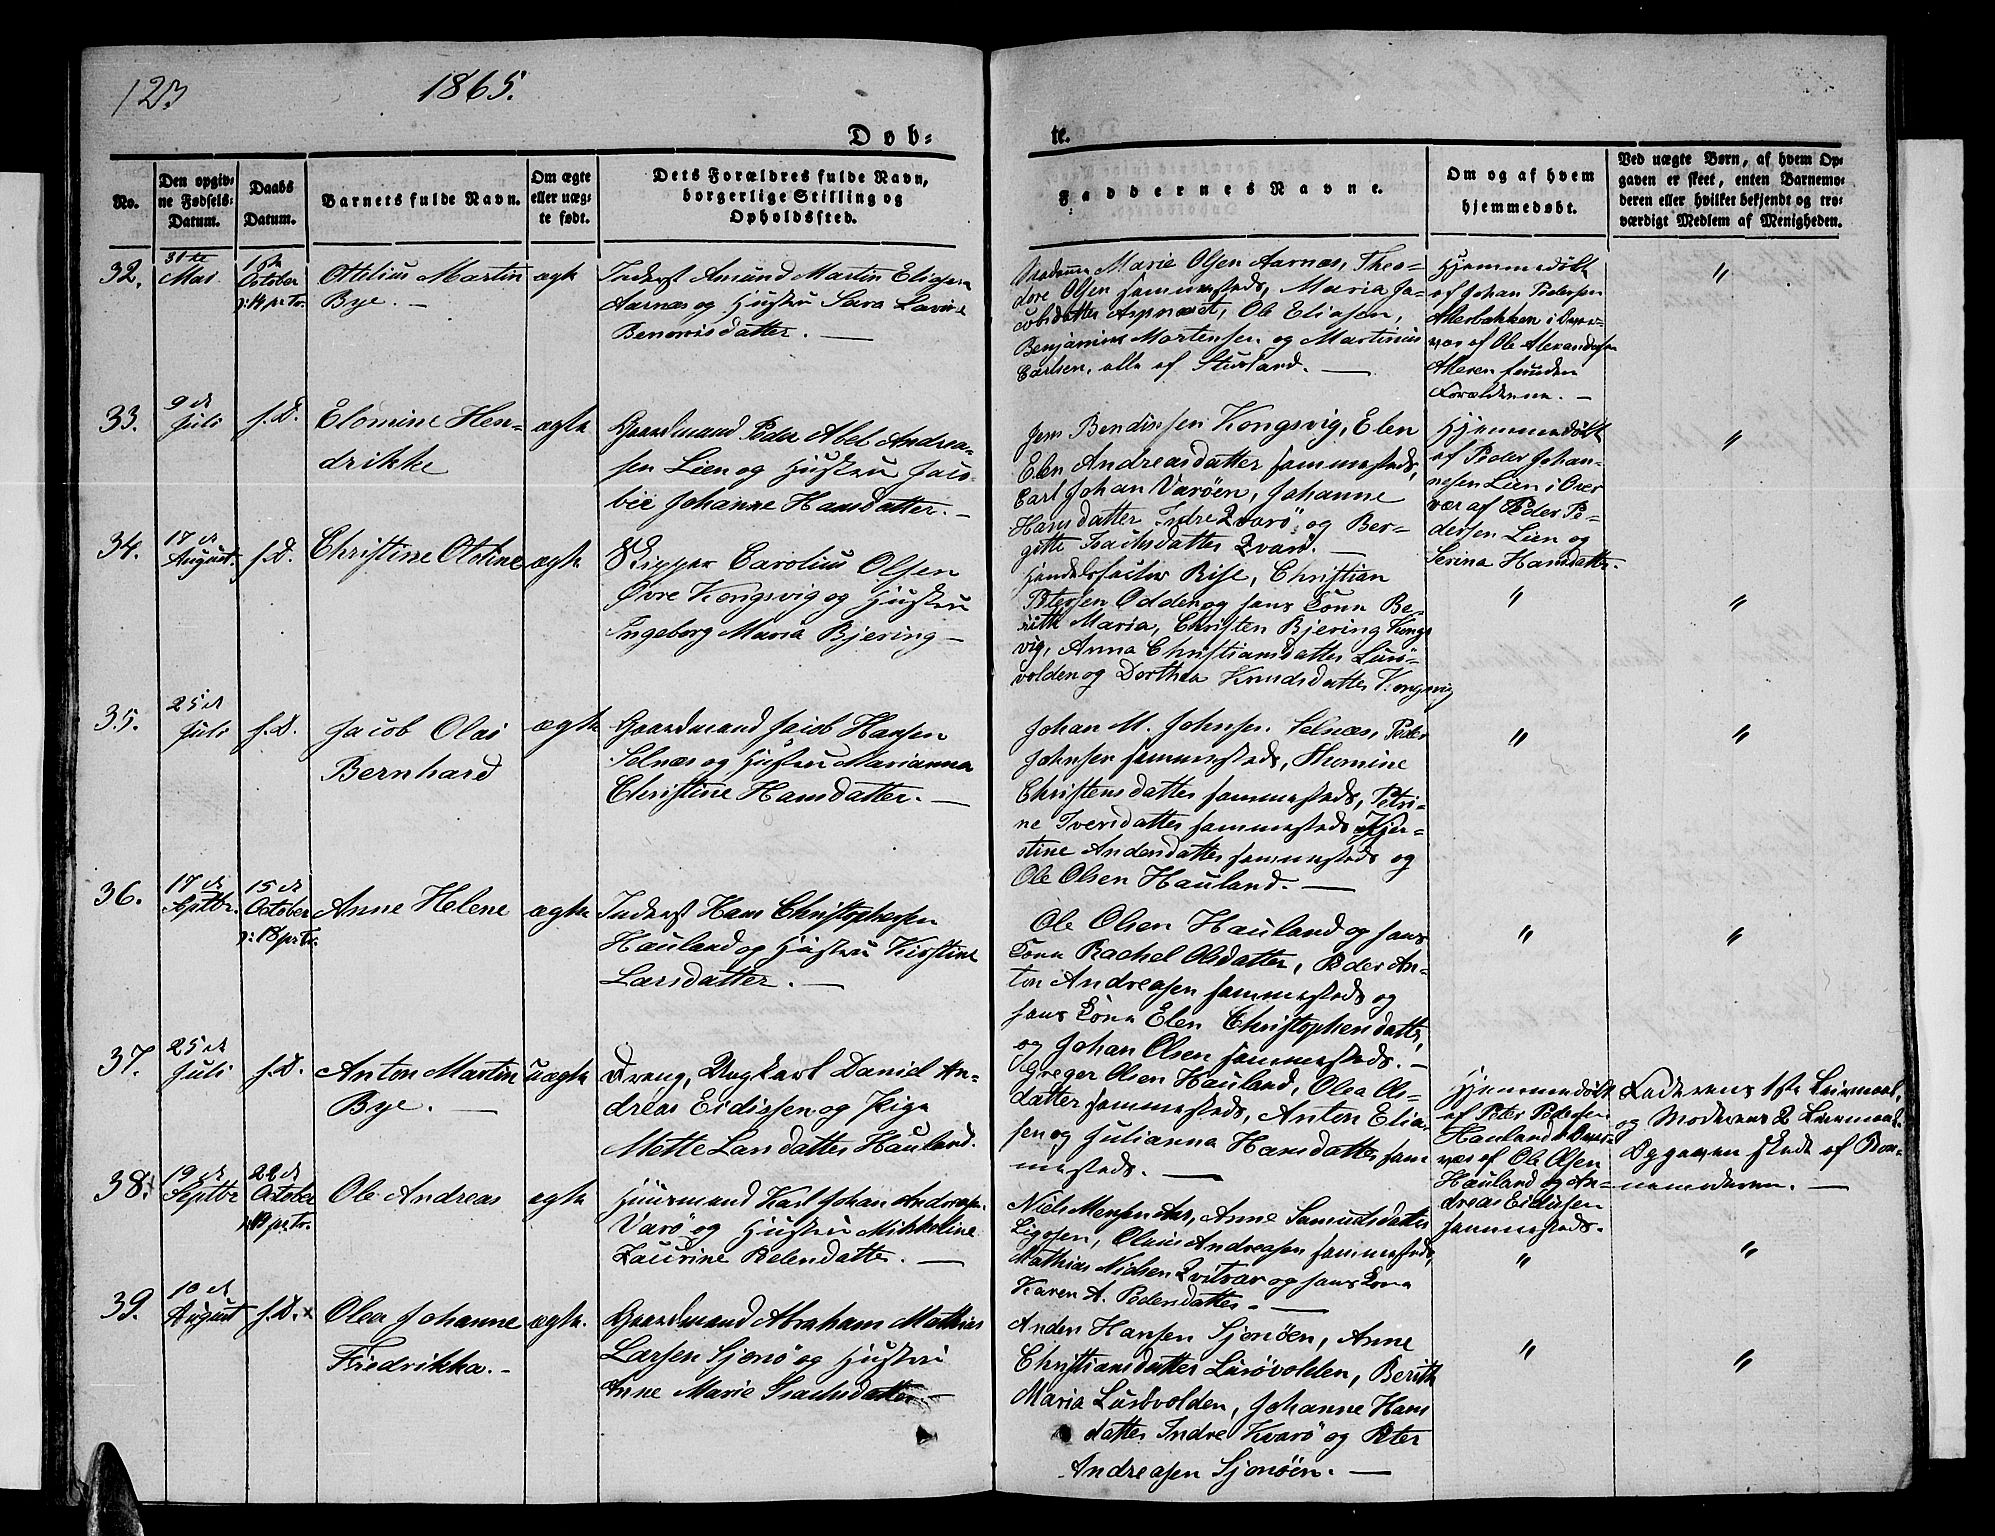 123
1865.
Døb=
te.
No.
Den opgiv=
ne Fødsels=
Datum.
Daabs
Datum.
Barnets fulde Navn.
Om ægte
eller uæg=
te født.
Dets Forældres fulde Navn,
borgerlige Stilling og
Opholdssted.
Faddernes Navne.
Om og af hvem
hjemmedøbt.
Ved uægte Børn, af hvem Op=
gaven er skeet, enten Barnemo=
deren eller hvilket bekjendt og tro=
værdigt Medlem af Menigheden.
32.
31te
Mai
October
14 p. Tr.
Ottilius Martin
Bye. —
ægte
Inderst Amund Martin Eliasen
Aarnæs og Hustru Sara Lavise
Benonisdatter. —
Marie Olsen Aarnæs, Theo-
dore Olsen sammesteds, Maria Ja-
cobsdatter Aspnæset, Ole Eliasen,
Benjamin Mortensen og Martinius
Carlsen, alle af Stuvland. —
Hjemmedøbt
af Johan Pedersen
i Over-
vær af Ole Alexandersen
foruden
Forældrene. —
"
33.
9de
Juli
s. D.
Elomine Hen-
drikke
ægte
Gaardmand Peder Abel Andrea-
sen Lien og Hustru Jaco-
bie Johanne Hansdatter. —
Jens Bendixsen Kongsvig, Elen
Elen Andreasdatter sammesteds,
Carl Johan Varöen, Johanne
Hansdatter Indre Qvarö og Ber-
gitte Isachsdatter Qvarö. —
Hjemmedøbt
af Peder Johan-
nesen Lien i Over
vær af Peder Pe-
dersen Lien og
Serina Hansdatter.
"
34.
17de
August.
s. D.
Christine Oldine
ægte
Skipper Carolius Olsen
Øvre Kongsvig og Hustru
Ingeborg Maria Bjering —
Handelsfactor Rise, Christian
Petersen Odden og hans Kone Be-
rith Maria, Christen Bjering Kongs
vig, Anna Christiansdatter Lurö-
volden og Dorthea Knudsdatter Kongsvig
"
"
35.
25de
Juli
s. D.
Jacob Olai
Bernhard
ægte
Gaardmand Jacob Hansen
Selnæs og Hustru Marianna
Christine Hansdatter. —
Johan M. Johnsen Selnæs, Peder
Johnsen sammesteds,
Christensdatter sammesteds, Petri-
ne Iversdatter sammesteds, Kjer-
stine Andersdatter sammesteds og
Ole Olsen Hauland. —
"
"
36.
17de
Septbr.
15de
October
18 p. Tr.
Anne Helene
ægte
Inderst Hans Christophersen
Hauland og Hustru Kirstine
Larsdatter. —
Ole Olsen Hauland og hans
Kone Rachel Olsdatter, Peder An-
ton Andreasen sammesteds og
hans Kone Elen Christophersdatter,
og Johan Olsen sammesteds. —
"
"
37.
25de
Juli
s. D.
Anton Martin
Bye. —
uægte
Dreng, Ungkarl Daniel An-
dreas Eidissen og Pige
Mette Larsdatter Hauland.
Greger Olsen Hauland, Olea Ols-
datter sammesteds, Anton Elia-
sen og Julianna Hansdatter sam
mesteds. —
Hjemmedøbt
af Peter Pedersen
Hauland i Over-
vær af Ole Olsen
Hauland og An-
dreas Eidissen
sammesteds.
Faderens 1ste Leiermaal,
og Moderens 2 Leiermaal.
Opgaven skede af Bar-
nemoderen. —
38.
19de
Septbr
22de
October
19 p. Tr.
Ole Andreas
ægte
Huusmand Karl Johan Andreasen
Varö og Hustru Mikkeline
Laurine Pedersdatter. —
Niels Anne Samuelsdatter
Olaus Andreasen sammesteds,
Mathias Nielsen og hans Kone
Karen A. Pedersdatter. —
"
"
39.
10de
August
s. D. x
Olea Johanne
Fredrikka. —
ægte.
Gaardmand Abraham Mathias
Larsen Sjonö og Hustru
Anne Marie Isachsdatter —
Anders Hansen Sjonöen, Anne
Christiansdatter Luröevolden, Berith
Maria Lurövolden, Johanne Hans
datter Indre Kvarö og Peter
Andreasen Sjonöen. —
"
"